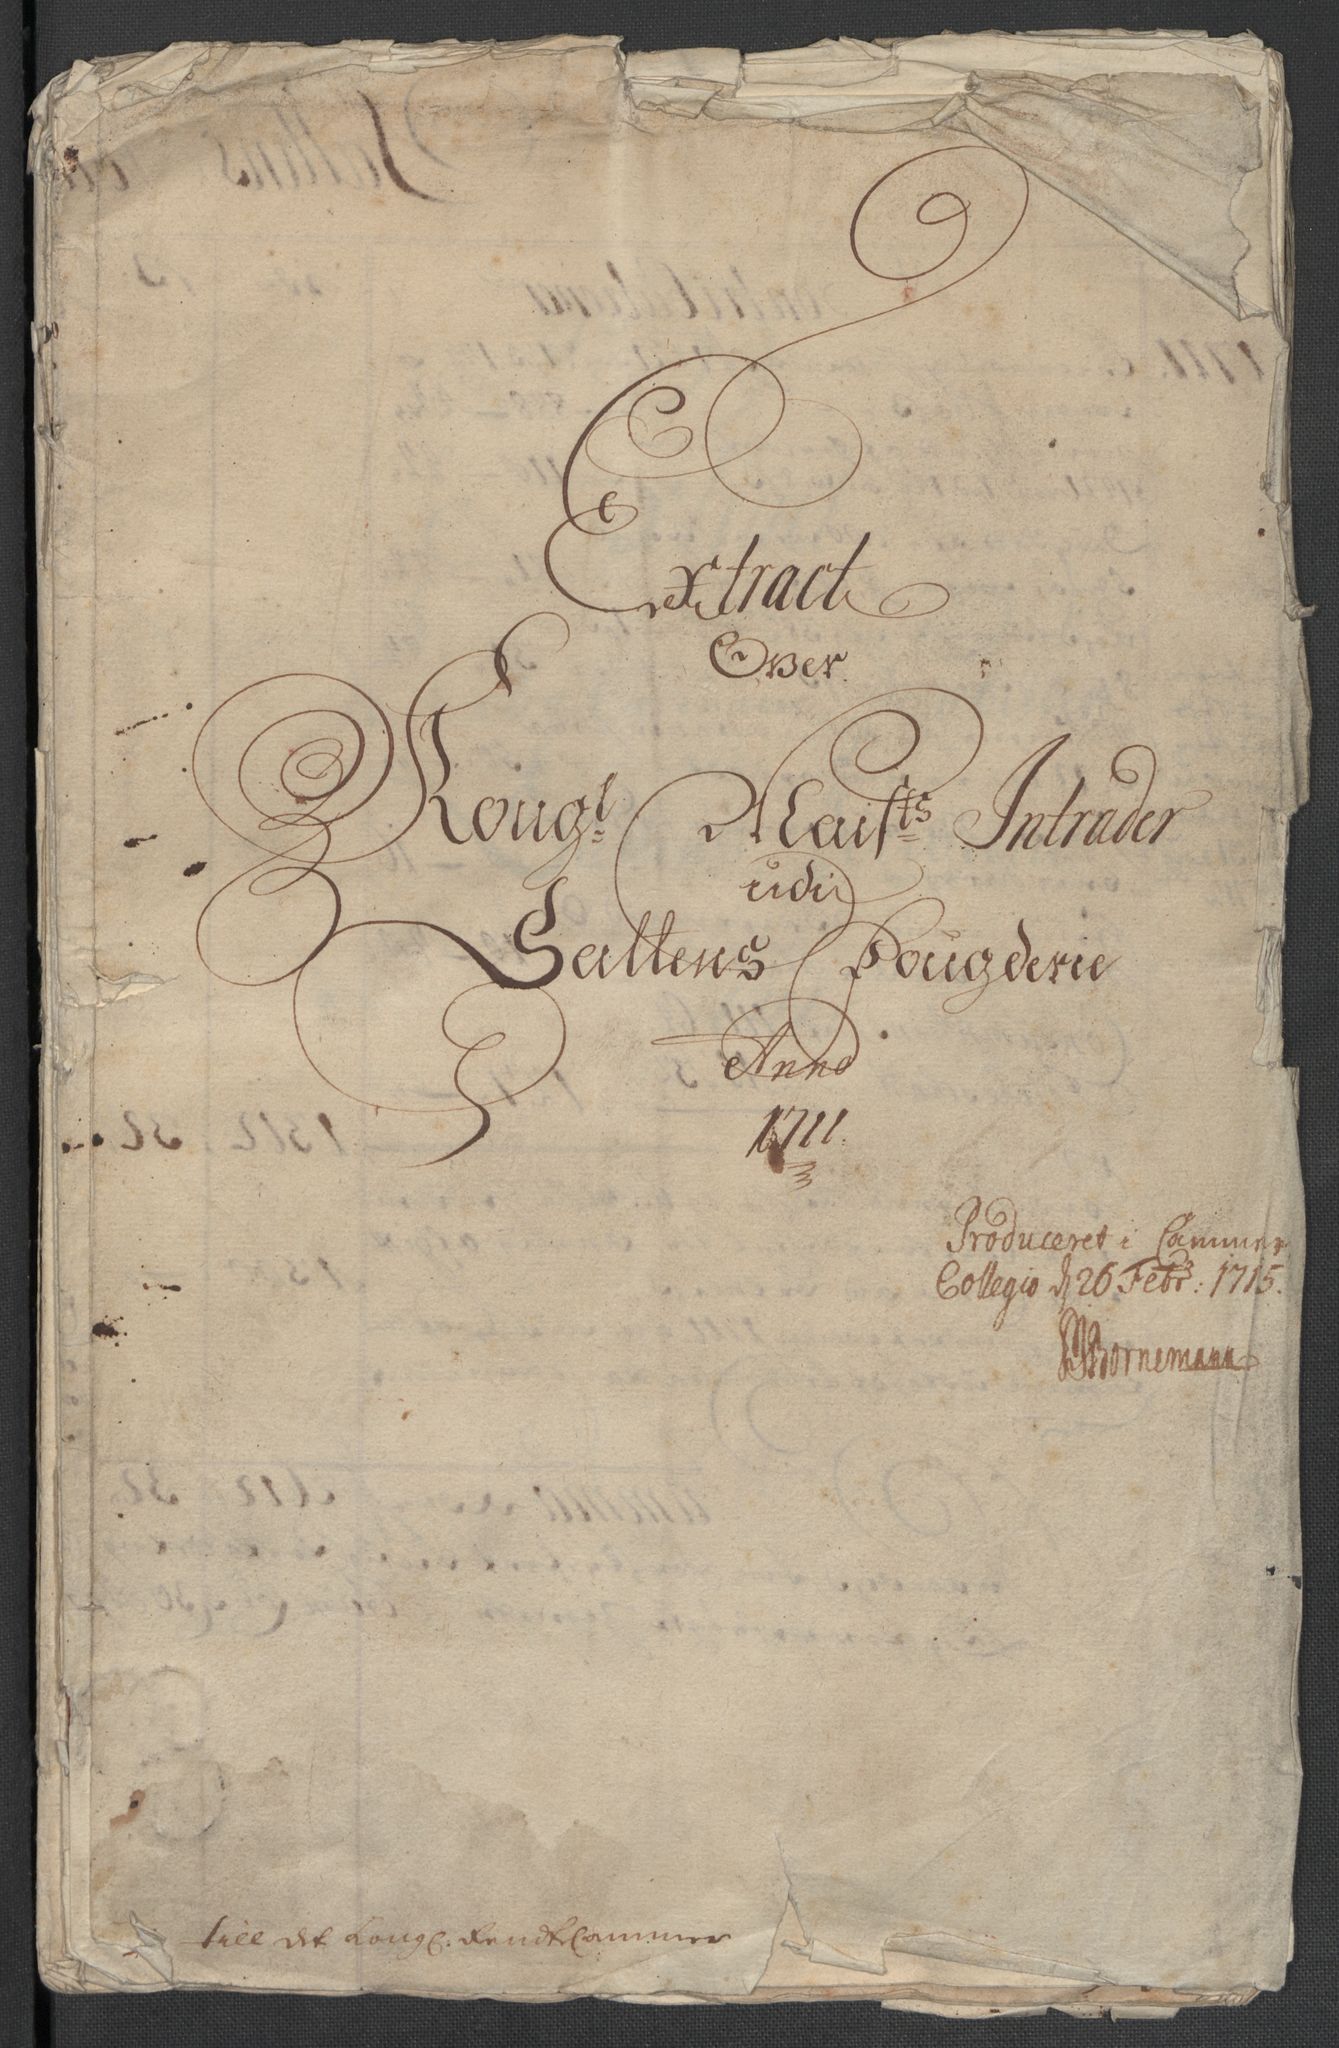 Extract
Over
Kongl Maists Intrader
udi
Saltens Fougderie
Anno
1711.
Produceret i Cammer
Collegio d 26 Febr: 1715.
Bornemann
till det Kongl. RendteCammer